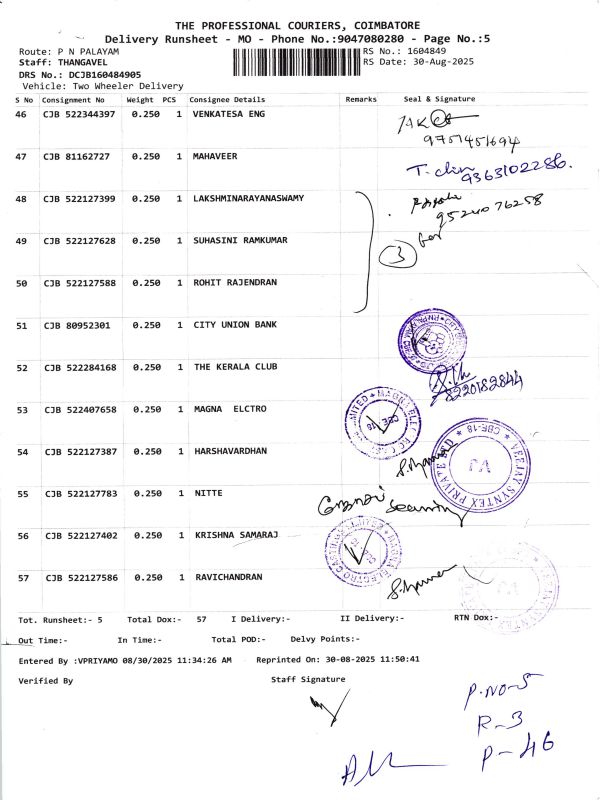 THE PROFESSIONAL COURIERS, COIMBATORE
Delivery Runsheet - MO - Phone No.:9047080280 - Page No.:5
Route: P N PALAYAM RS No.: 1604849
Staff: THANGAVEL RS Date: 30-Aug-2025
DRS No.: DCJB160484905
Vehicle: Two Wheeler Delivery
S No Consignment No Weight PCS Consignee Details Remarks Seal & Signature
46 CJB 522344397 0.250 1 VENKATESA ENG
9751451694
47 CJB 81162727 0.250 1 MAHAVEER
9363102286.
48 CJB 522127399 0.250 1 LAKSHMINARAYANASWAMY
9524076258
49 CJB 522127628 0.250 1 SUHASINI RAMKUMAR
3 for
50 CJB 522127588 0.250 1 ROHIT RAJENDRAN
51 CJB 80952301 0.250 1 CITY UNION BANK
52 CJB 522284168 0.250 1 THE KERALA CLUB
8220182844
53 CJB 522407658 0.250 1 MAGNA ELCTRO
CBE-18
54 CJB 522127387 0.250 1 HARSHAVARDHAN
VEEJAY SYNTEX PRIVATE LTD CBE-18
VJ
55 CJB 522127783 0.250 1 NITTE
Security
56 CJB 522127402 0.250 1 KRISHNA SAMARAJ
57 CJB 522127586 0.250 1 RAVICHANDRAN
Tot. Runsheet:- 5 Total Dox:- 57 I Delivery:- II Delivery:- RTN Dox:-
Out Time:- In Time:- Total POD:- Delvy Points:-
Entered By :VPRIYAMO 08/30/2025 11:34:26 AM Reprinted On: 30-08-2025 11:50:41
Verified By Staff Signature
P.NO-5
R-3
P-46